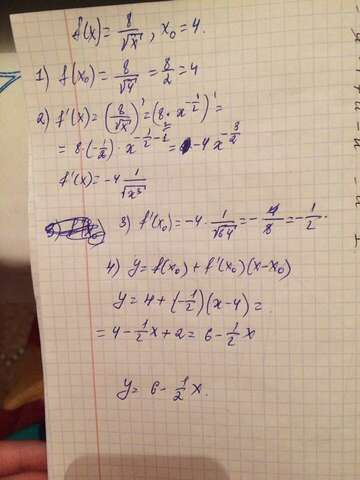 f(x) = 8/√x, x₀ = 4.
1) f(x₀) = 8/√4 = 8/2 = 4
2) f'(x) = (8/√x)' = (8·x^(-1/2))' =
= 8·(-1/2)·x^(-1/2-1) = -4x^(-3/2)
f'(x) = -4 1/√x³
3) f'(x₀) = -4·1/√64 = -4/8 = -1/2.
4) y = f(x₀) + f'(x₀)(x-x₀)
y = 4 + (-1/2)(x-4) =
= 4 - 1/2x + 2 = 6 - 1/2x
y = 6 - 1/2x.